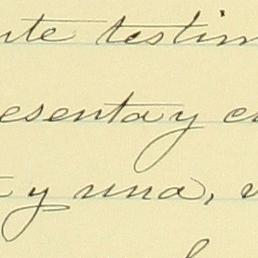 nte testim
esenta y c
y una,